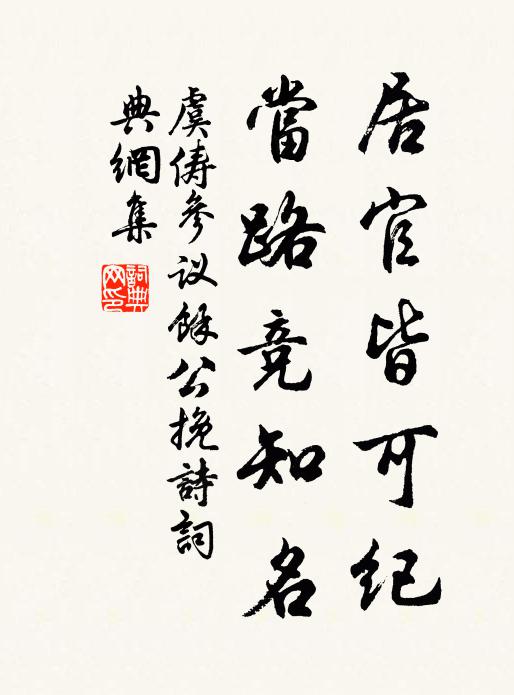 居官皆可紀
當路竞知名
虞俦參议餘公挽詩詞
典網集
詞典网印